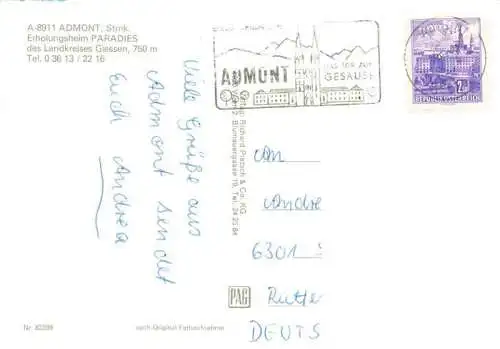 A-8911 ADMONT, Stmk.
Erholungsheim PARADIES
des Landkreises Giessen, 750 m
Tel. 0 36 13 / 22 16
ADMONT
DAS TOR ZUM
GESÄUSE
REPUBLIK ÖSTERREICH
Viele Grüße aus
Admont sendet
Euch Andrea
Verlag: Richard Pietsch & Co. KG.
Blumauergasse 19, Tel. 24 25 84
An
Andre
6301
DEUTS
PAG
Nr. 82398
nach Original-Farbaufnahme